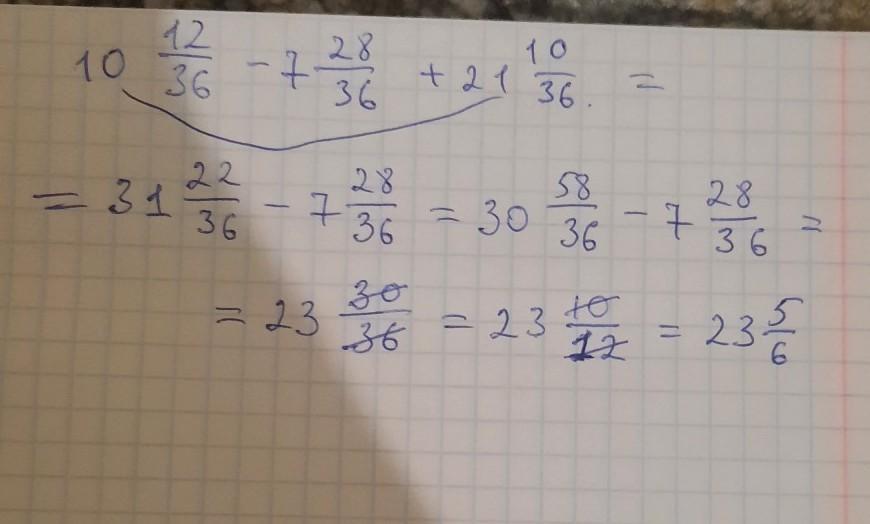 10 12/36 - 7 28/36 + 21 10/36. =
= 31 22/36 - 7 28/36 = 30 58/36 - 7 28/36 =
= 23 30/36 = 23 10/12 = 23 5/6